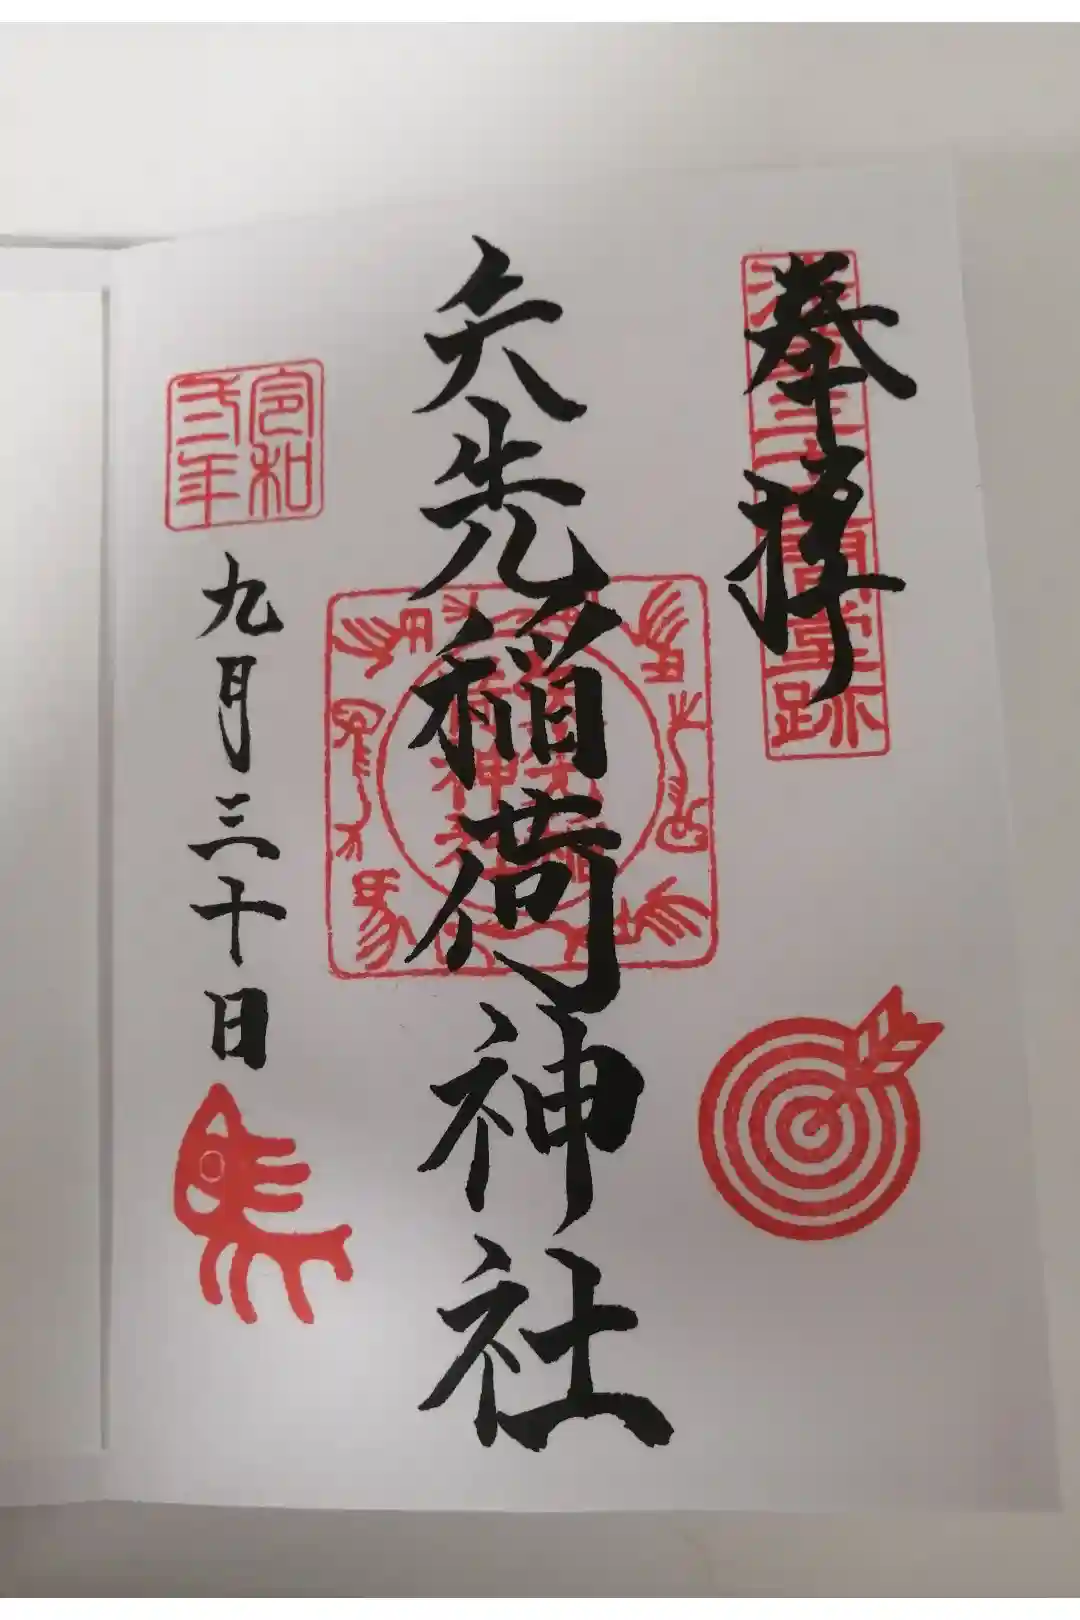 奉拝
浅草三十三間堂跡
矢先稲荷神社
令和
弐年
九月三十日
馬